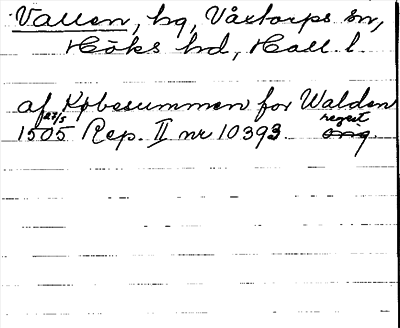 Vallen, hg, Våxtorps sn,
Höks hd, Hall. l.
af Købesummen for Walden
1505 27/5 Rep. II nr 10393. regest
orig.